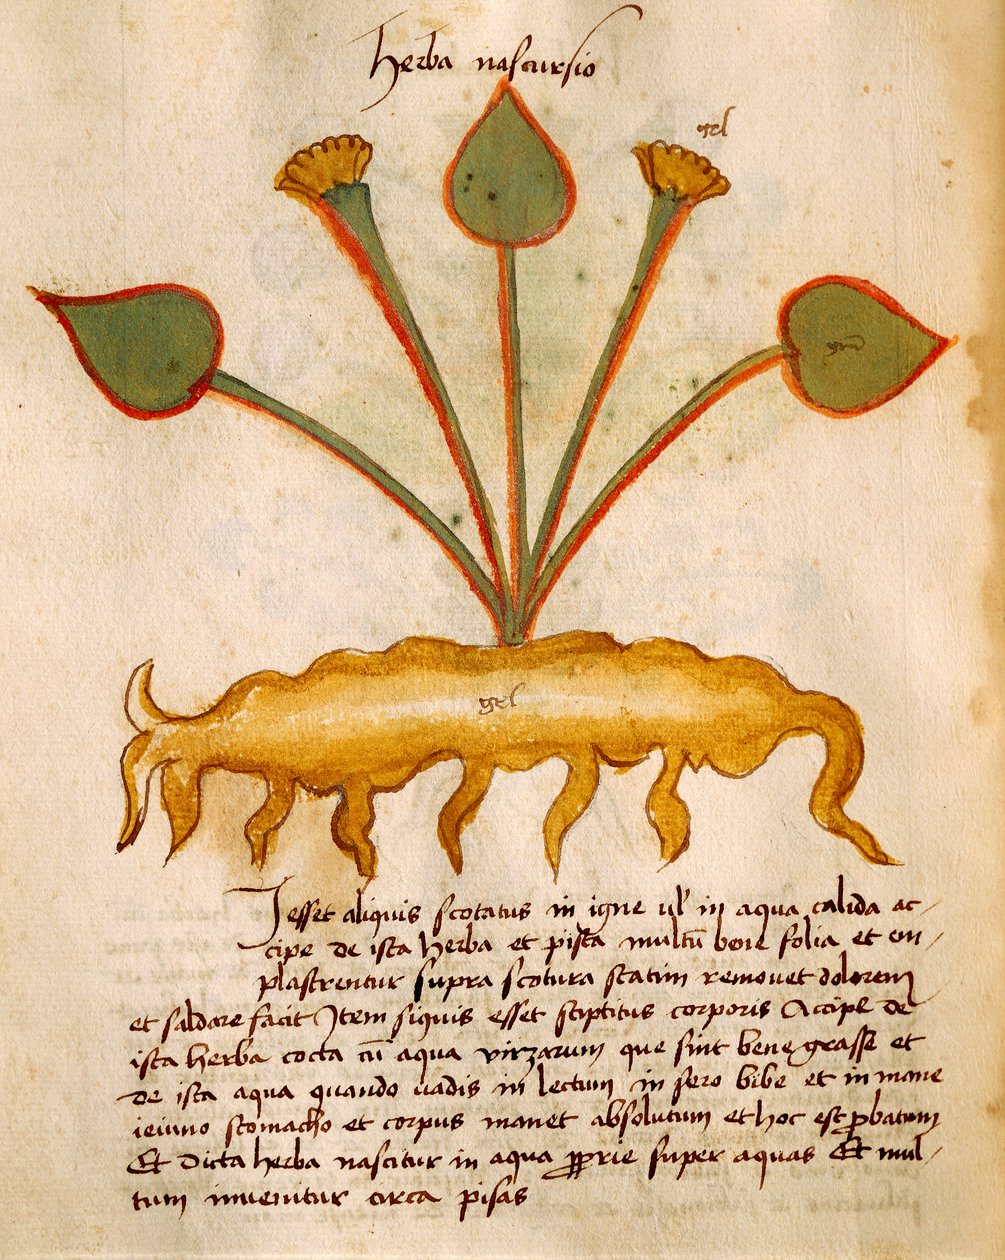 herba nascursio
gel
grun
gel
Jesset aliquis scotatus in igne ul' in aqua calida ac-
cipe de ista herba et pista multũ bene folia et em-
plastrentur supra scotura statim remouet dolorem
et saldare facit Item siquis esset stiptitus corporis Accipe de
ista herba cocta cũ aqua virzarum que sint bene grasse et
de ista aqua quando uadis in lectum in sero bibe et in mane
ieiuno stomacho et corpus manet absolutum et hoc est ꝓbatum
Et dicta herba nascitur in aqua ꝓprie super aquas Et mul-
tum inuenitur circa pisas